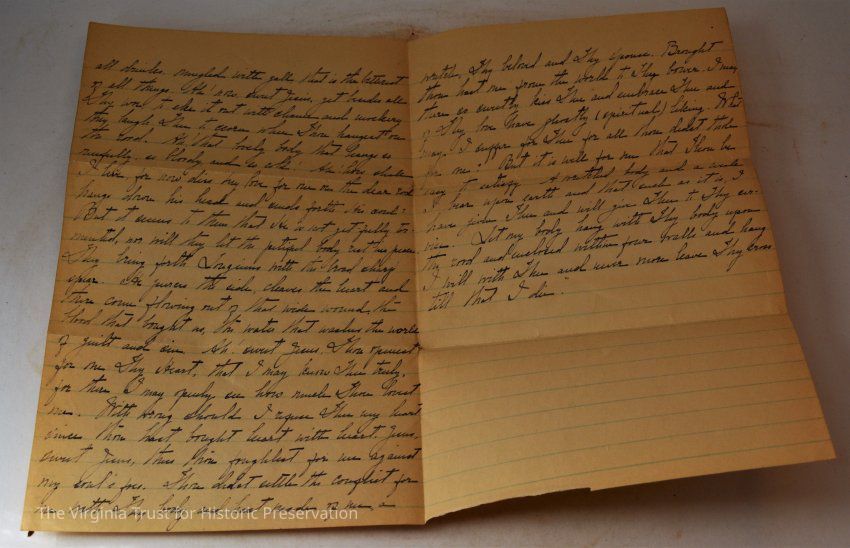 all drinks, mingled with gall that is the bitterest
of all things. Ah now sweet Jesus, yet besides all
Thy woe to eke it out with shame and mockery
they laugh Thee to scorn when Thou hangest on
the rood. Ah that lovely body that hangs so
ruefully, so bloody and so cold. Ah! How shall
I live, for now dies my love for me on the dear rood
hangs down his head and sends forth His soul:
But it seems to them that He is not yet fully tor-
mented, nor will they let the pitiful body rest in peace
They bring forth Longinus with the broad sharp
spear. He pierces the side, cleaves the heart and
there come flowing out of that wide wound, the
blood that bought us, the water that washes the world
of guilt and sin. Ah! sweet Jesus, Thou openest
for me Thy Heart, that I may know Thee truly,
for there I may openly see how much Thou lovest
me. With wrong should I refuse Thee my heart
since Thou hast bought heart with heart. Jesus,
sweet Jesus, thus Thou foughtest for me against
my soul's foes. Thou didst settle the conflict for
me with Thy body and hast made of me, a
wretch, Thy beloved and Thy spouse. Brought
Thou hast me from the world to Thy bower. I may
there so sweetly kiss Thee and embrace Thee and
of Thy love have ghostly (spiritual) liking. What
may I suffer for Thee for all Thou didst thole
for me? But it is well for me that Thou be
easy to satisfy. A wretched body and a weak
I bear upon earth and that such as it is, I
have given Thee and will give Thee to Thy ser-
vice. Let my body hang with Thy body upon
the rood and enclosed within four walls and hang
I will with Thee and never more leave Thy Cross
till that I die."
The Virginia Trust for Historic Preservation